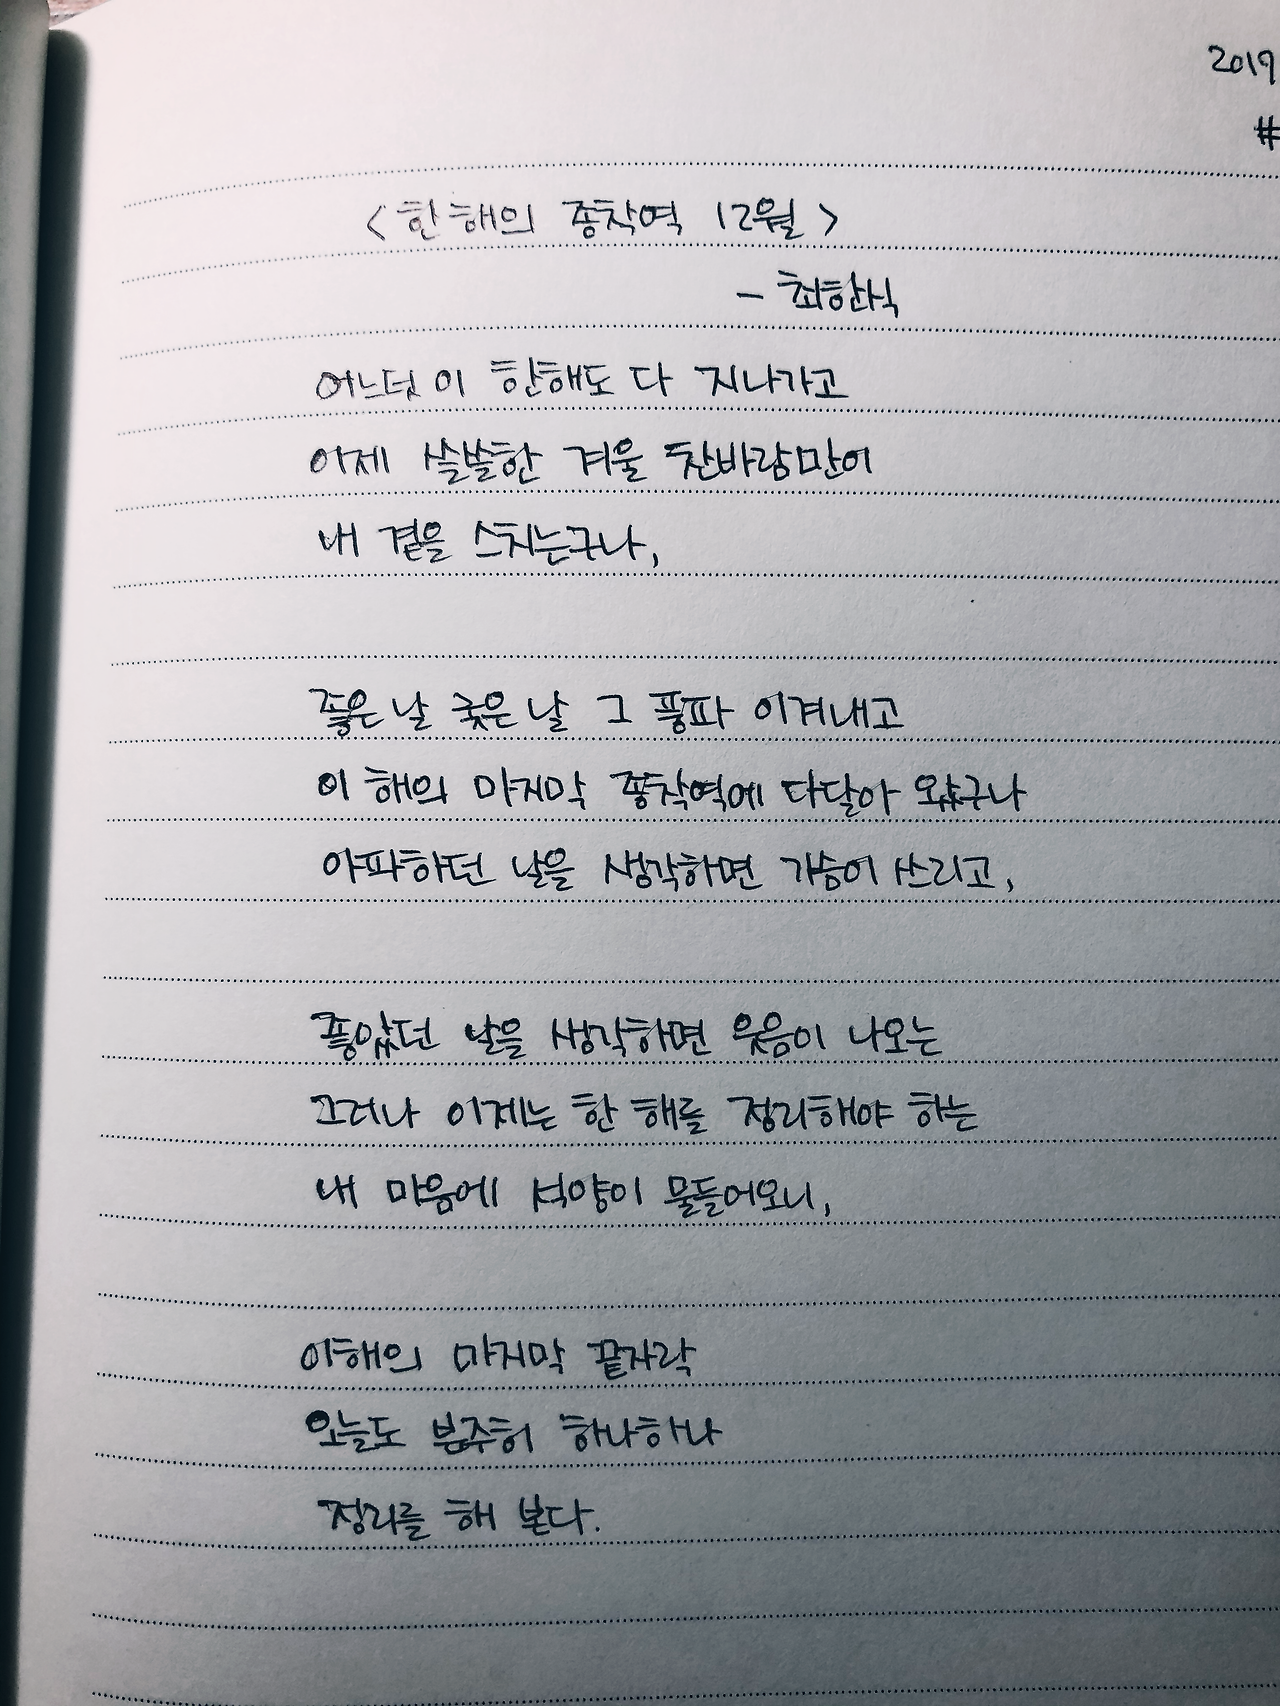 2019
#
<한 해의 종착역 12월>
- 최한식
어느덧 이 한해도 다 지나가고
이제 쓸쓸한 겨울 찬바람만이
내 곁을 스치는구나,
좋은 날 궂은 날 그 풍파 이겨내고
이 해의 마지막 종착역에 다달아 왔구나
아파하던 날을 생각하면 가슴이 쓰리고,
좋았던 날을 생각하면 웃음이 나오는
그러나 이제는 한 해를 정리해야 하는
내 마음에 석양이 물들어오니,
이해의 마지막 끝자락
오늘도 분주히 하나하나
정리를 해 본다.